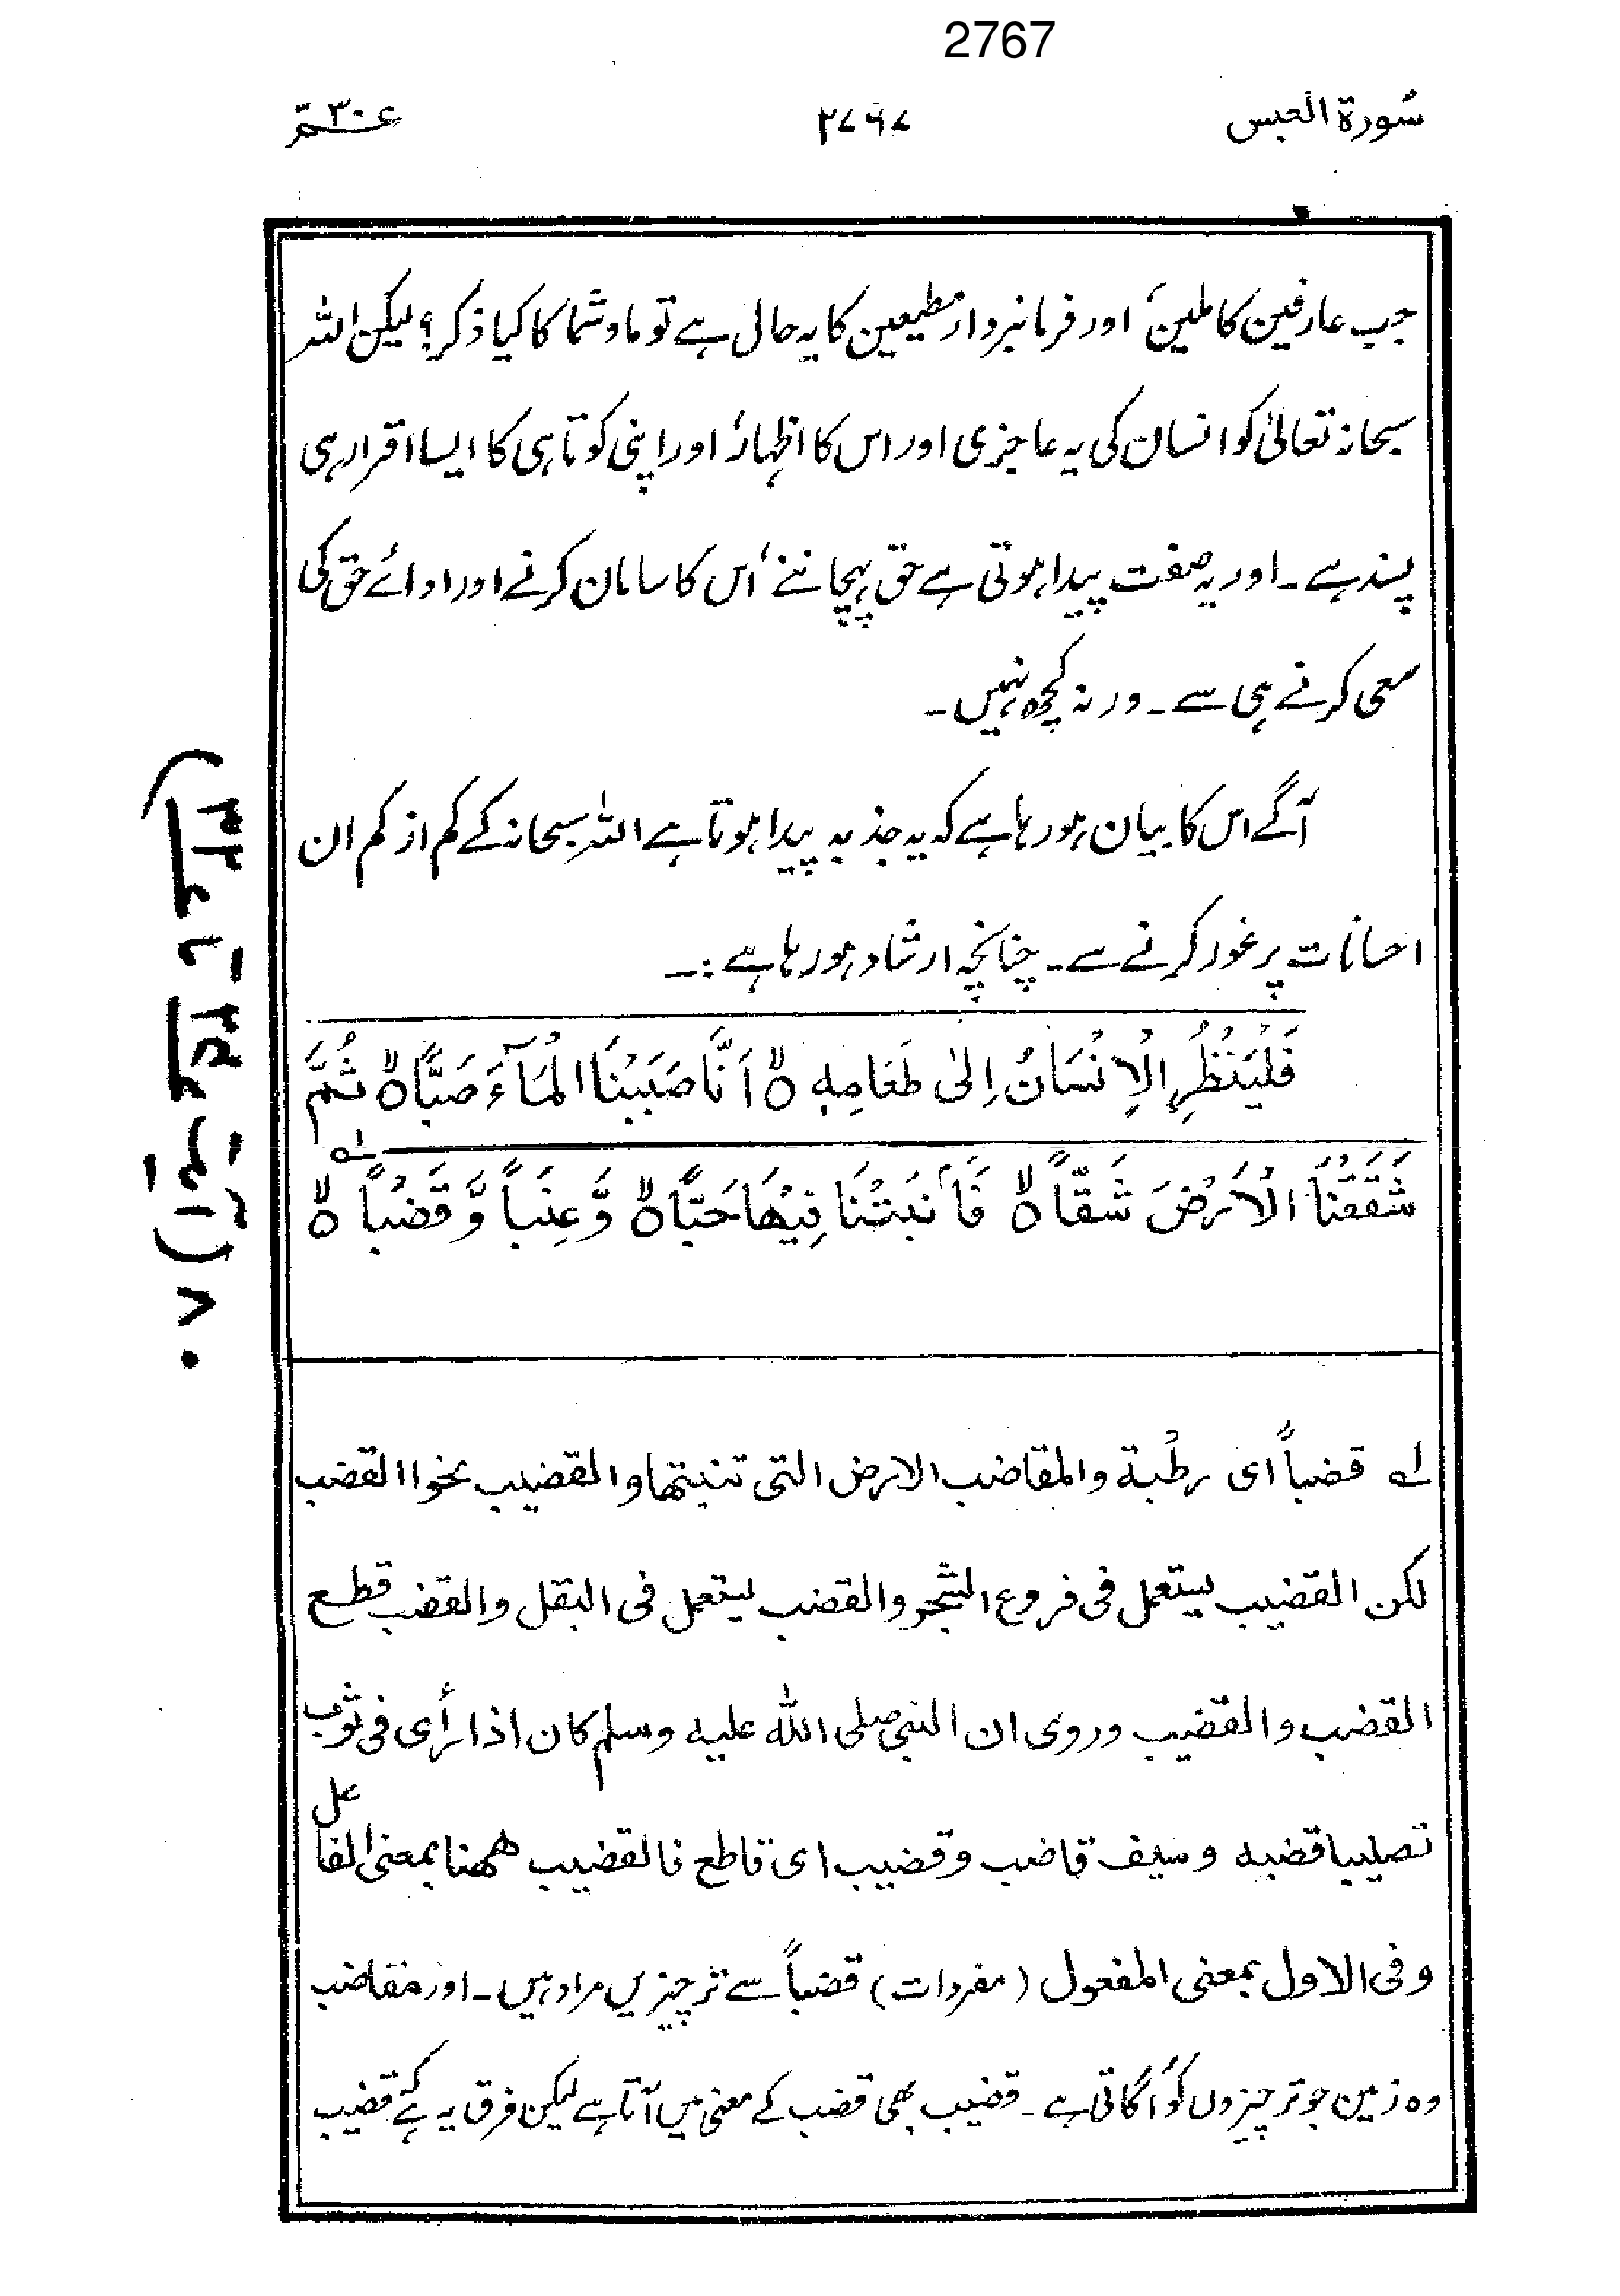 2767
سُورۃ العبس
۲۷۶۷
عمّ ۳۰
جب عارفین کاملین، اور فرمانبردار مطیعین کا یہ حال ہے تو ما و شما کا کیا ذکر؟ لیکن اللہ
سبحانہ تعالیٰ کو انسان کی یہ عاجزی اور اس کا اظہار، اور اپنی کوتاہی کا ایسا اقرار ہی
پسند ہے۔ اور یہ صفت پیدا ہوتی ہے حق پہچاننے، اُس کا سامان کرنے اور ادائے حق کی
سعی کرنے ہی سے۔ ورنہ کچھ نہیں۔
آگے اس کا بیان ہو رہا ہے کہ یہ جذبہ پیدا ہوتا ہے اللہ سبحانہ کے کم از کم ان
احسانات پر غور کرنے سے۔ چنانچہ ارشاد ہو رہا ہے:۔
فَلْيَنْظُرِ الْاِنْسَانُ اِلٰى طَعَامِهٖ ۙ اَنَّا صَبَبْنَا الْمَآءَ صَبًّا ۙ ثُمَّ
شَقَقْنَا الْاَرْضَ شَقًّا ۙ فَاَنْبَتْنَا فِيْهَا حَبًّا ۙ وَّعِنَبًا وَّقَضْبًا ۙ
۸۰ (آیت ۲۴ تا ۳۲)
لہ قضباً ای رطْبة والمقاضب الارض التی تنبتها والقضیب نحوا القضب
لکن القضیب یستعمل فی فروع الشجر والقضب یستعمل فی البقل والقضب قطع
القضب والقضیب وروی ان النبی صلی اللہ علیہ وسلم کان اذا رأی فی ثوب
تصلیبا قضبه وسیف قاضب وقضیب ای قاطع فالقضیب ھھنا بمعنی الفاعل
وفی الاول بمعنی المفعول (مفردات) قضباً سے تر چیزیں مراد ہیں۔ اور مقاضب
وہ زمین جو تر چیزوں کو اُگاتی ہے۔ قضیب بھی قضب کے معنی میں آتا ہے لیکن فرق یہ ہے کہ قضیب